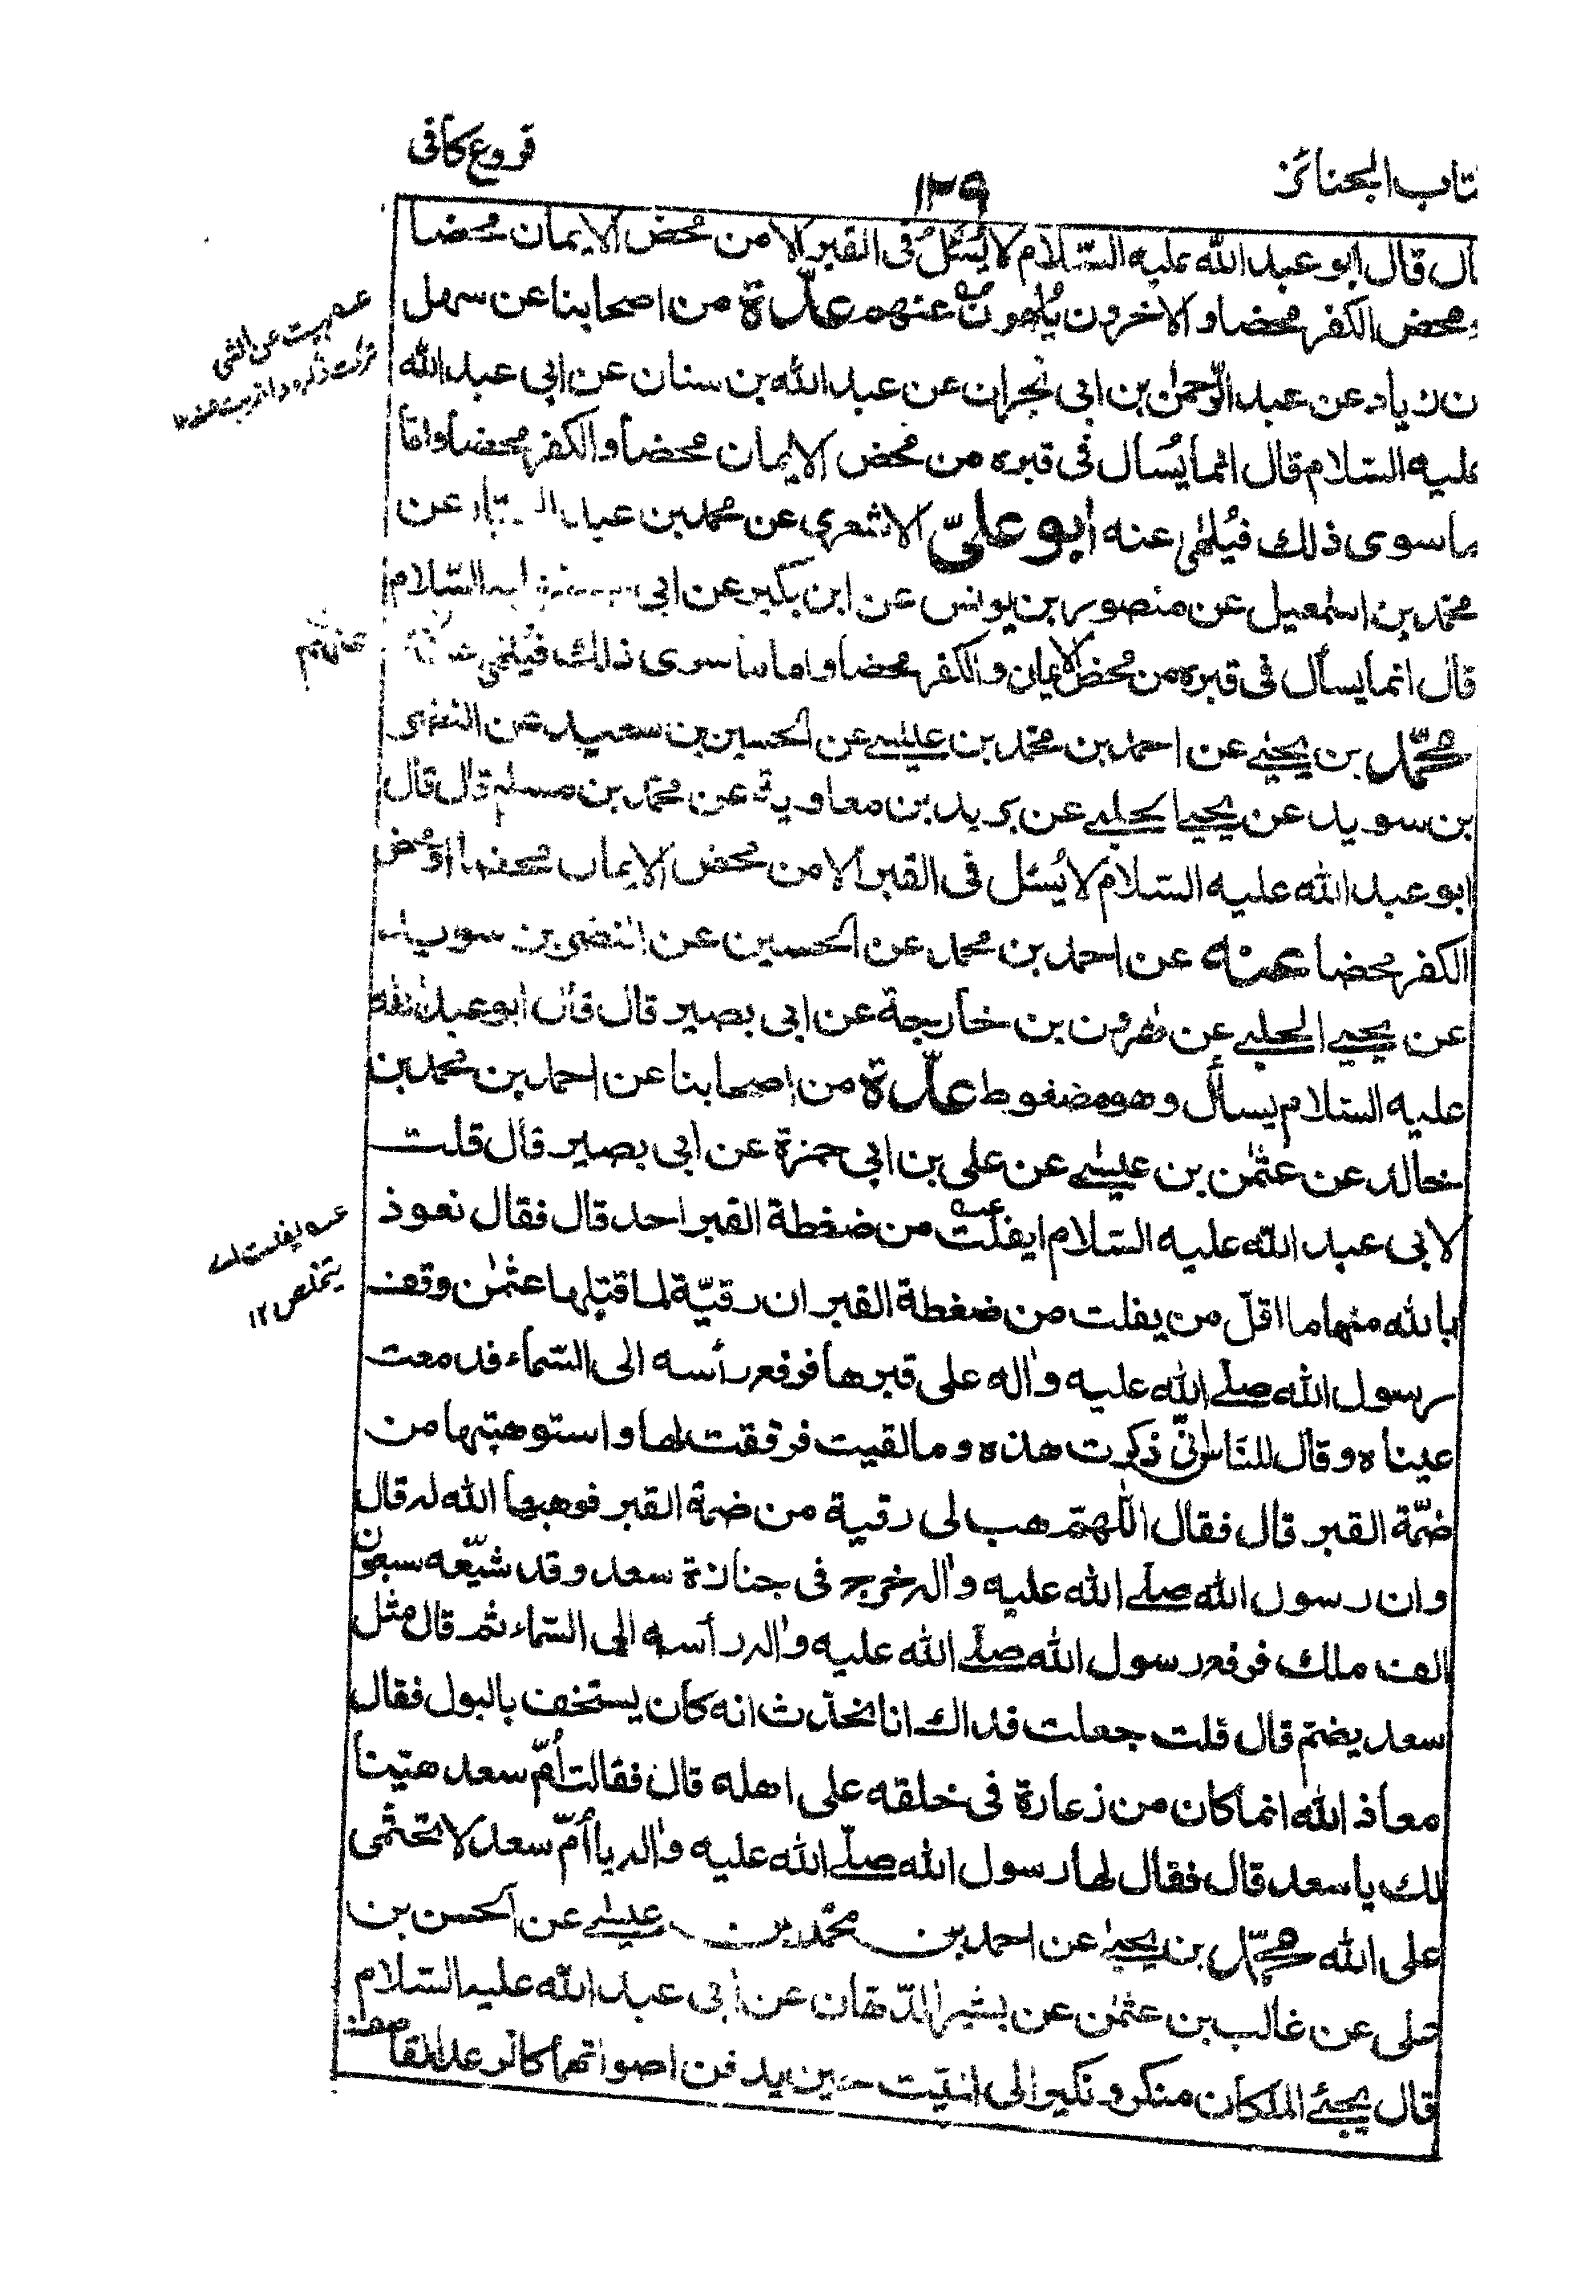 فروع كافى
١٢٩
تاب الجنائز
ال قال ابو عبد الله عليه السّلام لا يُسْئَلُ فى القبر الا من محض الايمان محضا
ومحض الكفر محضا والاخرون يُلهون عنهم عدّة من اصحابنا عن سهل
بن زياد عن عبد الرّحمٰن بن ابى نجران عن عبد الله بن سنان عن ابى عبد الله
عليه السلام قال انما يُسَأل فى قبره من محض الايمان محضا والكفر محضا واما
ما سوى ذلك فيُلهٰى عنه ابو علىّ الاشعرى عن محمد بن عبد الجبار عن
محمّد بن اسمٰعيل عن منصور بن يونس عن ابن بكير عن ابى السّلام
قال انما يسأل فى قبره من محض الايمان والكفر محضا واما ما سوى ذلك فيُلهى
محمّد بن يحيٰى عن احمد بن محمّد بن عيسٰى عن الحسين بن سعيد عن النضر
بن سويد عن يحيى الحلبى عن بريد بن معاوية عن محمّد بن مسلم قال قال
ابو عبد الله عليه السّلام لا يُسئل فى القبر الا من محض الايمان محضا او محض
الكفر محضا عنه عن احمد بن محمد عن الحسين عن النضر بن سويد
عن يحيى الحلبى عن هٰرون بن خارجة عن ابى بصير قال قال ابو عبد الله
عليه السّلام يسأل وهو مضغوط عدّة من اصحابنا عن احمد بن محمد بن
خالد عن عثمٰن بن عيسٰى عن على بن ابى حمزة عن ابى بصير قال قلت
لابى عبد الله عليه السّلام ايفلت من ضغطة القبر احد قال فقال نعوذ
بالله منها ما اقلّ من يفلت من ضغطة القبر ان رقيّة لما قتلها عثمٰن وقف
رسول الله صلّى الله عليه واٰله على قبرها فرفع رأسه الى السّماء فدمعت
عيناه وقال للنّاس انّى ذكرت هذه وما لقيت فرققت لها واستوهبتها من
ضمّة القبر قال فقال اللّٰهمّ هب لى رقية من ضمة القبر فوهبها الله له قال
وان رسول الله صلّى الله عليه واٰله خرج فى جنازة سعد وقد شيّعه سبعون
الف ملك فرفع رسول الله صلّى الله عليه واٰله رأسه الى السّماء ثم قال مثل
سعد يضمّ قال قلت جعلت فداك انا نحدّث انه كان يستخف بالبول فقال
معاذ الله انما كان من زعارة فى خلقه على اهله قال فقالت أمّ سعد هنيئا
لك يا سعد قال فقال لها رسول الله صلّى الله عليه واٰله يا أمّ سعد لا تحتمى
على الله محمّد بن يحيٰى عن احمد بن محمّد بن عيسٰى عن الحسن بن
على عن غالب بن عثمٰن عن بشير الدّهان عن ابى عبد الله عليه السّلام
قال يجئ الملكان منكر ونكير الى الميّت حين يدفن اصواتهما كالرعد القاصف
عنهم
عــه يفلت اى
يتخلص ١٢